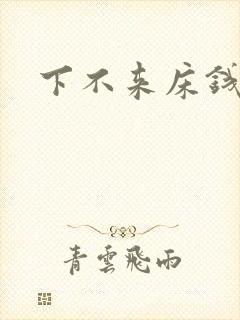 下不来床
青雲飛雨